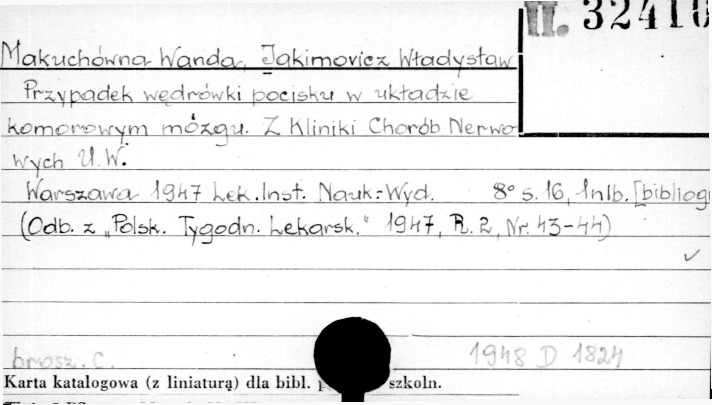 II. 32410
Makuchówna Wanda, Jakimowicz Władysław
Przypadek wędrówki pocisku w układzie
komorowym mózgu. Z Kliniki Chorób Nerwo-
wych U.W.
Warszawa 1947 Lek. Inst. Nauk.-Wyd. 8° s. 16, 1 nlb. [bibliogr
(Odb. z „Polsk. Tygodn. Lekarsk." 1947, R. 2, Nr. 43-44)
brosz. C. 1948 D 1824
Karta katalogowa (z liniaturą) dla bibl. szkoln.